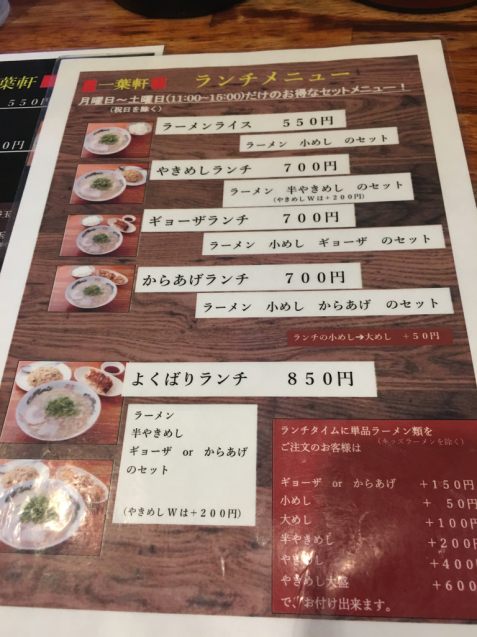 葉軒
550円
一葉軒 ランチメニュー
月曜日～土曜日(11:00~15:00)だけのお得なセットメニュー！
(祝日を除く)
ラーメンライス 550円
ラーメン 小めし のセット
やきめしランチ 700円
ラーメン 半やきめし のセット
(やきめしWは+200円)
ギョーザランチ 700円
ラーメン 小めし ギョーザ のセット
からあげランチ 700円
ラーメン 小めし からあげ のセット
ランチの小めし➔大めし +50円
よくばりランチ 850円
ラーメン
半やきめし
ギョーザ or からあげ
のセット
(やきめしWは+200円)
ランチタイムに単品ラーメン類を
(キッズラーメンを除く)
ご注文のお客様は
ギョーザ or からあげ +150円
小めし +50円
大めし +100円
半やきめし +200円
やきめし +400円
やきめし大盛 +600
で、お付け出来ます。